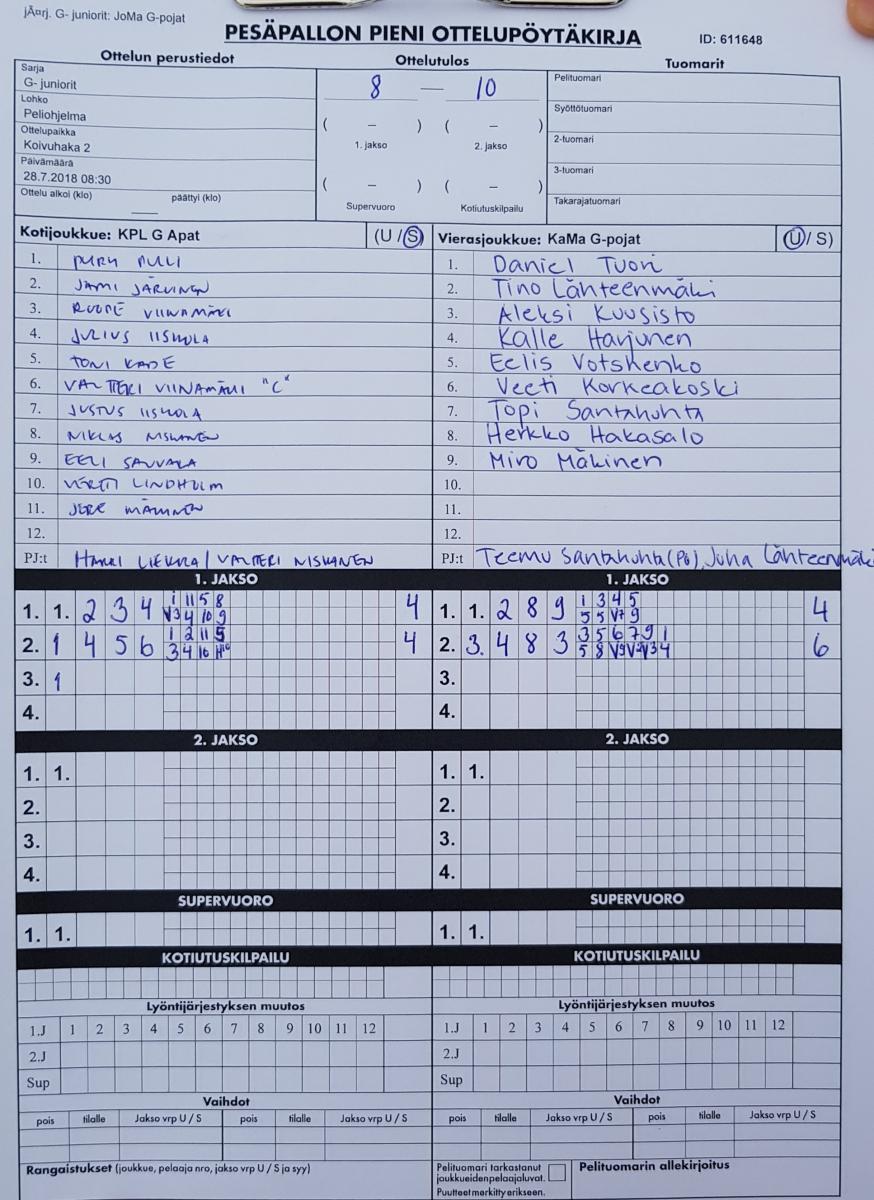 jÃ¤rj. G- juniorit: JoMa G-pojat
PESÄPALLON PIENI OTTELUPÖYTÄKIRJA
ID: 611648
Ottelun perustiedot
Sarja
G- juniorit
Lohko
Peliohjelma
Ottelupaikka
Koivuhaka 2
Päivämäärä
28.7.2018 08:30
Ottelu alkoi (klo) päättyi (klo)
Ottelutulos
8 — 10
( – ) ( – )
1. jakso 2. jakso
( – ) ( – )
Supervuoro Kotiutuskilpailu
Tuomarit
Pelituomari
Syöttötuomari
2-tuomari
3-tuomari
Takarajatuomari
Kotijoukkue: KPL G Apat (U / S)
1.
2. JAMI JÄRVINEN
3. VIINAMÄKI
4. JULIUS IISKOLA
5. TONI
6. VALTTERI VIINAMÄKI "C"
7. JUSTUS IISKOLA
8. NIKLAS NISKANEN
9. EELI SAVVALA
10. LINDHOLM
11. JERE
12.
PJ:t / VALTTERI NISKANEN
Vierasjoukkue: KaMa G-pojat (U / S)
1. Daniel Tuori
2. Tino Lähteenmäki
3. Aleksi Kuusisto
4. Kalle Harjunen
5. Eelis Votshenko
6. Veeti Korkeakoski
7. Topi Santahuhta
8. Herkko Hakasalo
9. Miro Mäkinen
10.
11.
12.
PJ:t Teemu Santahuhta (Pö), Juha Lähteenmäki
1. JAKSO
1. 1. 2 3 4 1 11 5 8 4
V3 4 10 9
2. 1 4 5 6 1 2 11 5 4
3 4 10
3. 1
4.
1. JAKSO
1. 1. 2 8 9 1 3 4 5 4
5 5 V7 9
2. 3. 4 8 3 3 5 6 7 9 1 6
5 8 V9 V2 V3 4
3.
4.
2. JAKSO
1. 1.
2.
3.
4.
2. JAKSO
1. 1.
2.
3.
4.
SUPERVUORO
1. 1.
SUPERVUORO
1. 1.
KOTIUTUSKILPAILU
KOTIUTUSKILPAILU
Lyöntijärjestyksen muutos
1.J 1 2 3 4 5 6 7 8 9 10 11 12
2.J
Sup
Lyöntijärjestyksen muutos
1.J 1 2 3 4 5 6 7 8 9 10 11 12
2.J
Sup
Vaihdot
pois tilalle Jakso vrp U / S pois tilalle Jakso vrp U / S
Vaihdot
pois tilalle Jakso vrp U / S pois tilalle Jakso vrp U / S
Rangaistukset (joukkue, pelaaja nro, jakso vrp U / S ja syy)
Pelituomari tarkastanut
joukkueidenpelaajaluvat.
Puutteet merkitty erikseen.
Pelituomarin allekirjoitus